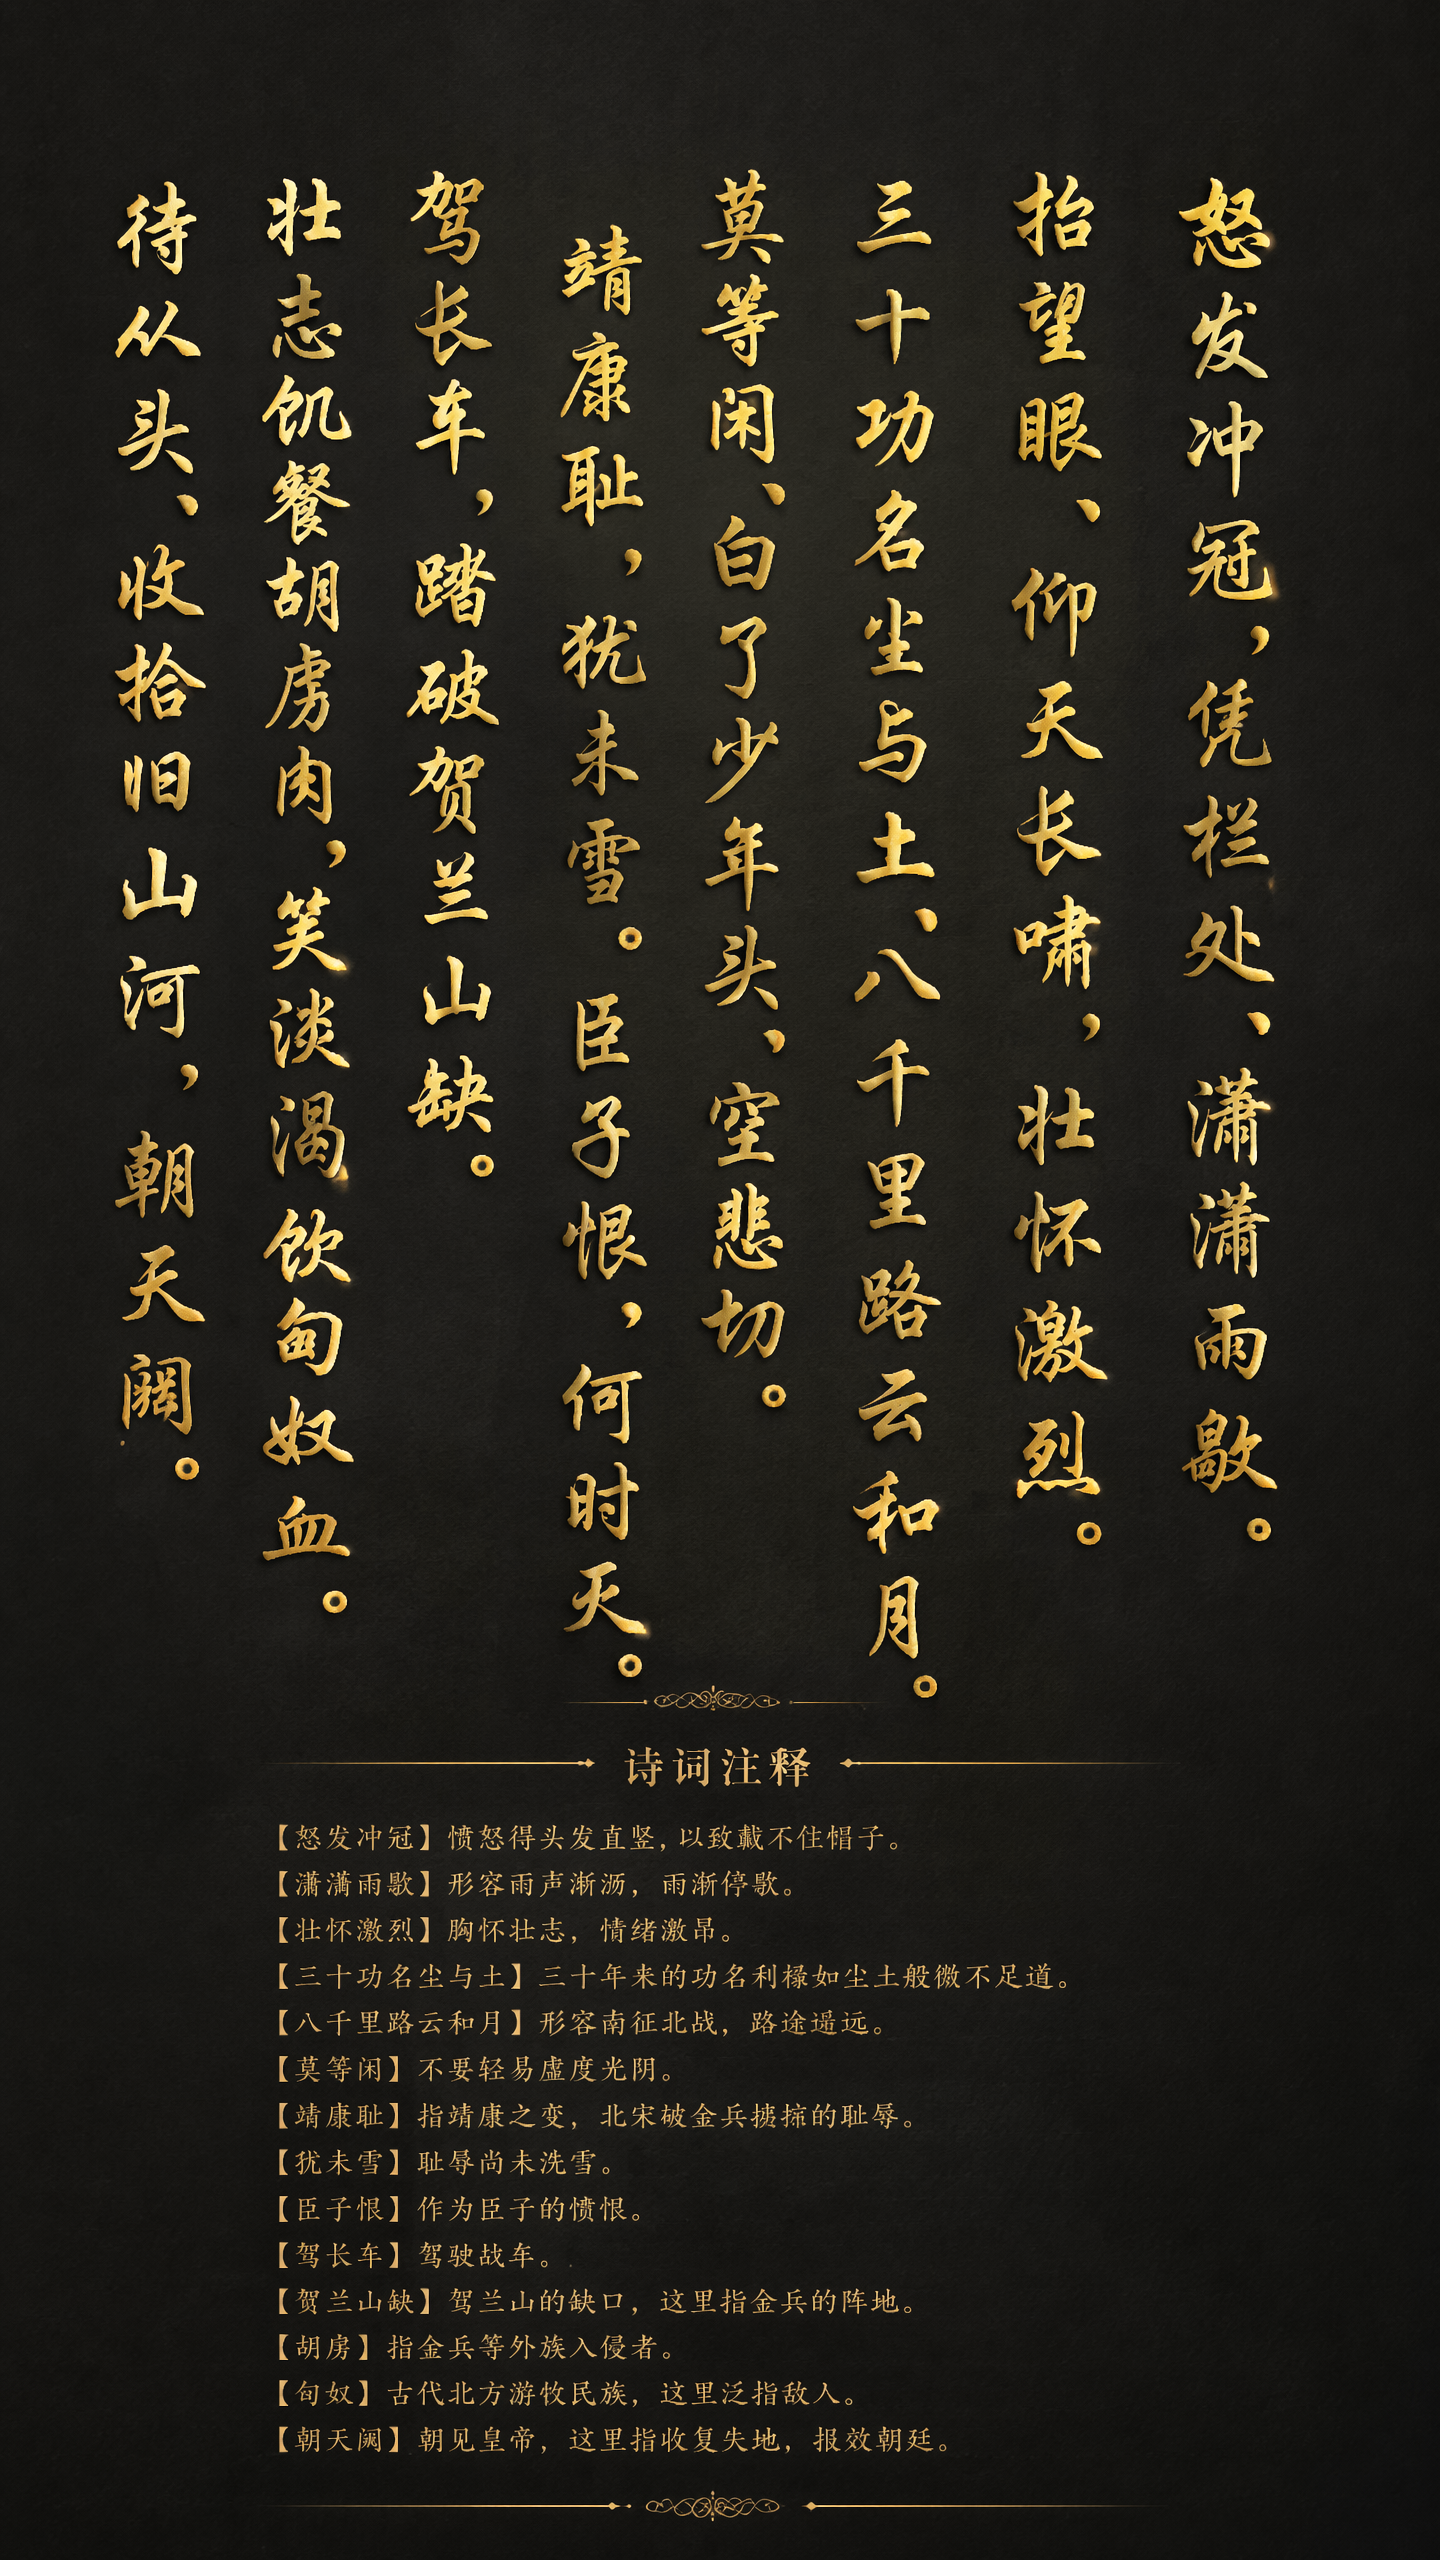 怒发冲冠，凭栏处、潇潇雨歇。
抬望眼、仰天长啸，壮怀激烈。
三十功名尘与土、八千里路云和月。
莫等闲、白了少年头，空悲切。
靖康耻，犹未雪。臣子恨，何时灭。
驾长车，踏破贺兰山缺。
壮志饥餐胡虏肉，笑淡渴饮匈奴血。
待从头、收拾旧山河，朝天阙。
诗词注释
【怒发冲冠】愤怒得头发直竖，以致戴不住帽子。
【潇潇雨歌】形容雨声渐沥，雨渐停歌。
【壮怀激烈】胸怀壮志，情绪激昂。
【三十功名尘与土】三十年来的功名利禄如尘土般微不足道。
【八千里路云和月】形容南征北战，路途遥远。
【莫等闲】不要轻易虚度光阴。
【靖康耻】指靖康之变，北宋破金兵掳掠的耻辱。
【犹未雪】耻辱尚未洗雪。
【臣子恨】作为臣子的愤恨。
【驾长车】驾驶战车。
【贺兰山缺】驾兰山的缺口，这里指金兵的阵地。
【胡虏】指金兵等外族入侵者。
【匈奴】古代北方游牧民族，这里泛指敌人。
【朝天阙】朝见皇帝，这里指收复失地，报效朝廷。